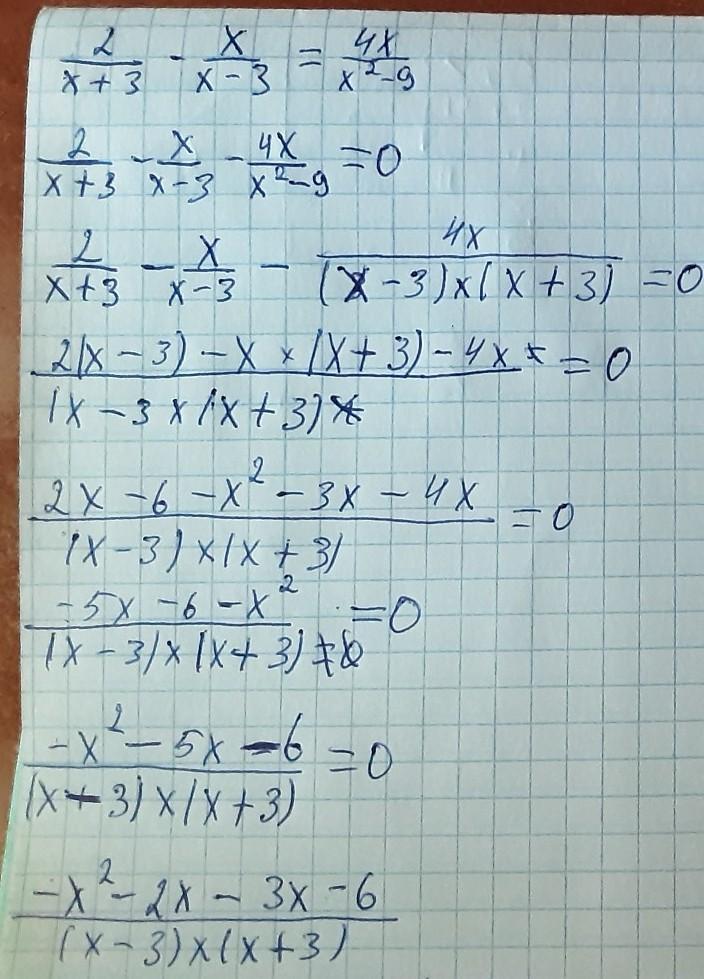 2/(x+3) - x/(x-3) = 4x/(x²-9)
2/(x+3) - x/(x-3) - 4x/(x²-9) = 0
2/(x+3) - x/(x-3) - 4x/((x-3)×(x+3)) = 0
2(x-3) - x × (x+3) - 4x = 0
(x-3 × (x+3)
2x - 6 - x² - 3x - 4x = 0
(x-3) × (x+3)
-5x - 6 - x² = 0
(x-3) × (x+3)
-x² - 5x - 6 = 0
(x-3) × (x+3)
-x² - 2x - 3x - 6
(x-3) × (x+3)